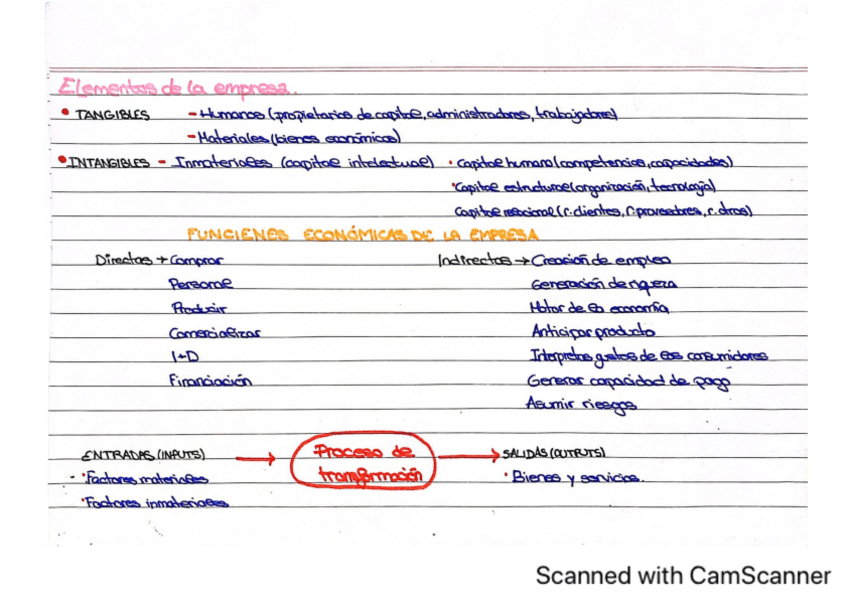 Elementos de la empresa.
• TANGIBLES - Humanos (propietarios de capital, administradores, trabajadores)
- Materiales (bienes económicos)
• INTANGIBLES - Inmateriales (capital intelectual) · Capital humano (competencias, capacidades)
· Capital estructural (organización, tecnología)
Capital relacional (r. clientes, r. proveedores, r. otros)
FUNCIENES ECONÓMICAS DE LA EMPRESA
Directas → Comprar Indirectas → Creación de empleo
Personal Generación de riqueza
Producir Motor de la economía
Comercializar Anticipar producto
I+D Interpretar gustos de los consumidores
Financiación Generar capacidad de pago
Asumir riesgos
ENTRADAS (INPUTS) → Proceso de → SALIDAS (OUTPUTS)
- · Factores materiales transformación · Bienes y servicios.
· Factores inmateriales
Scanned with CamScanner